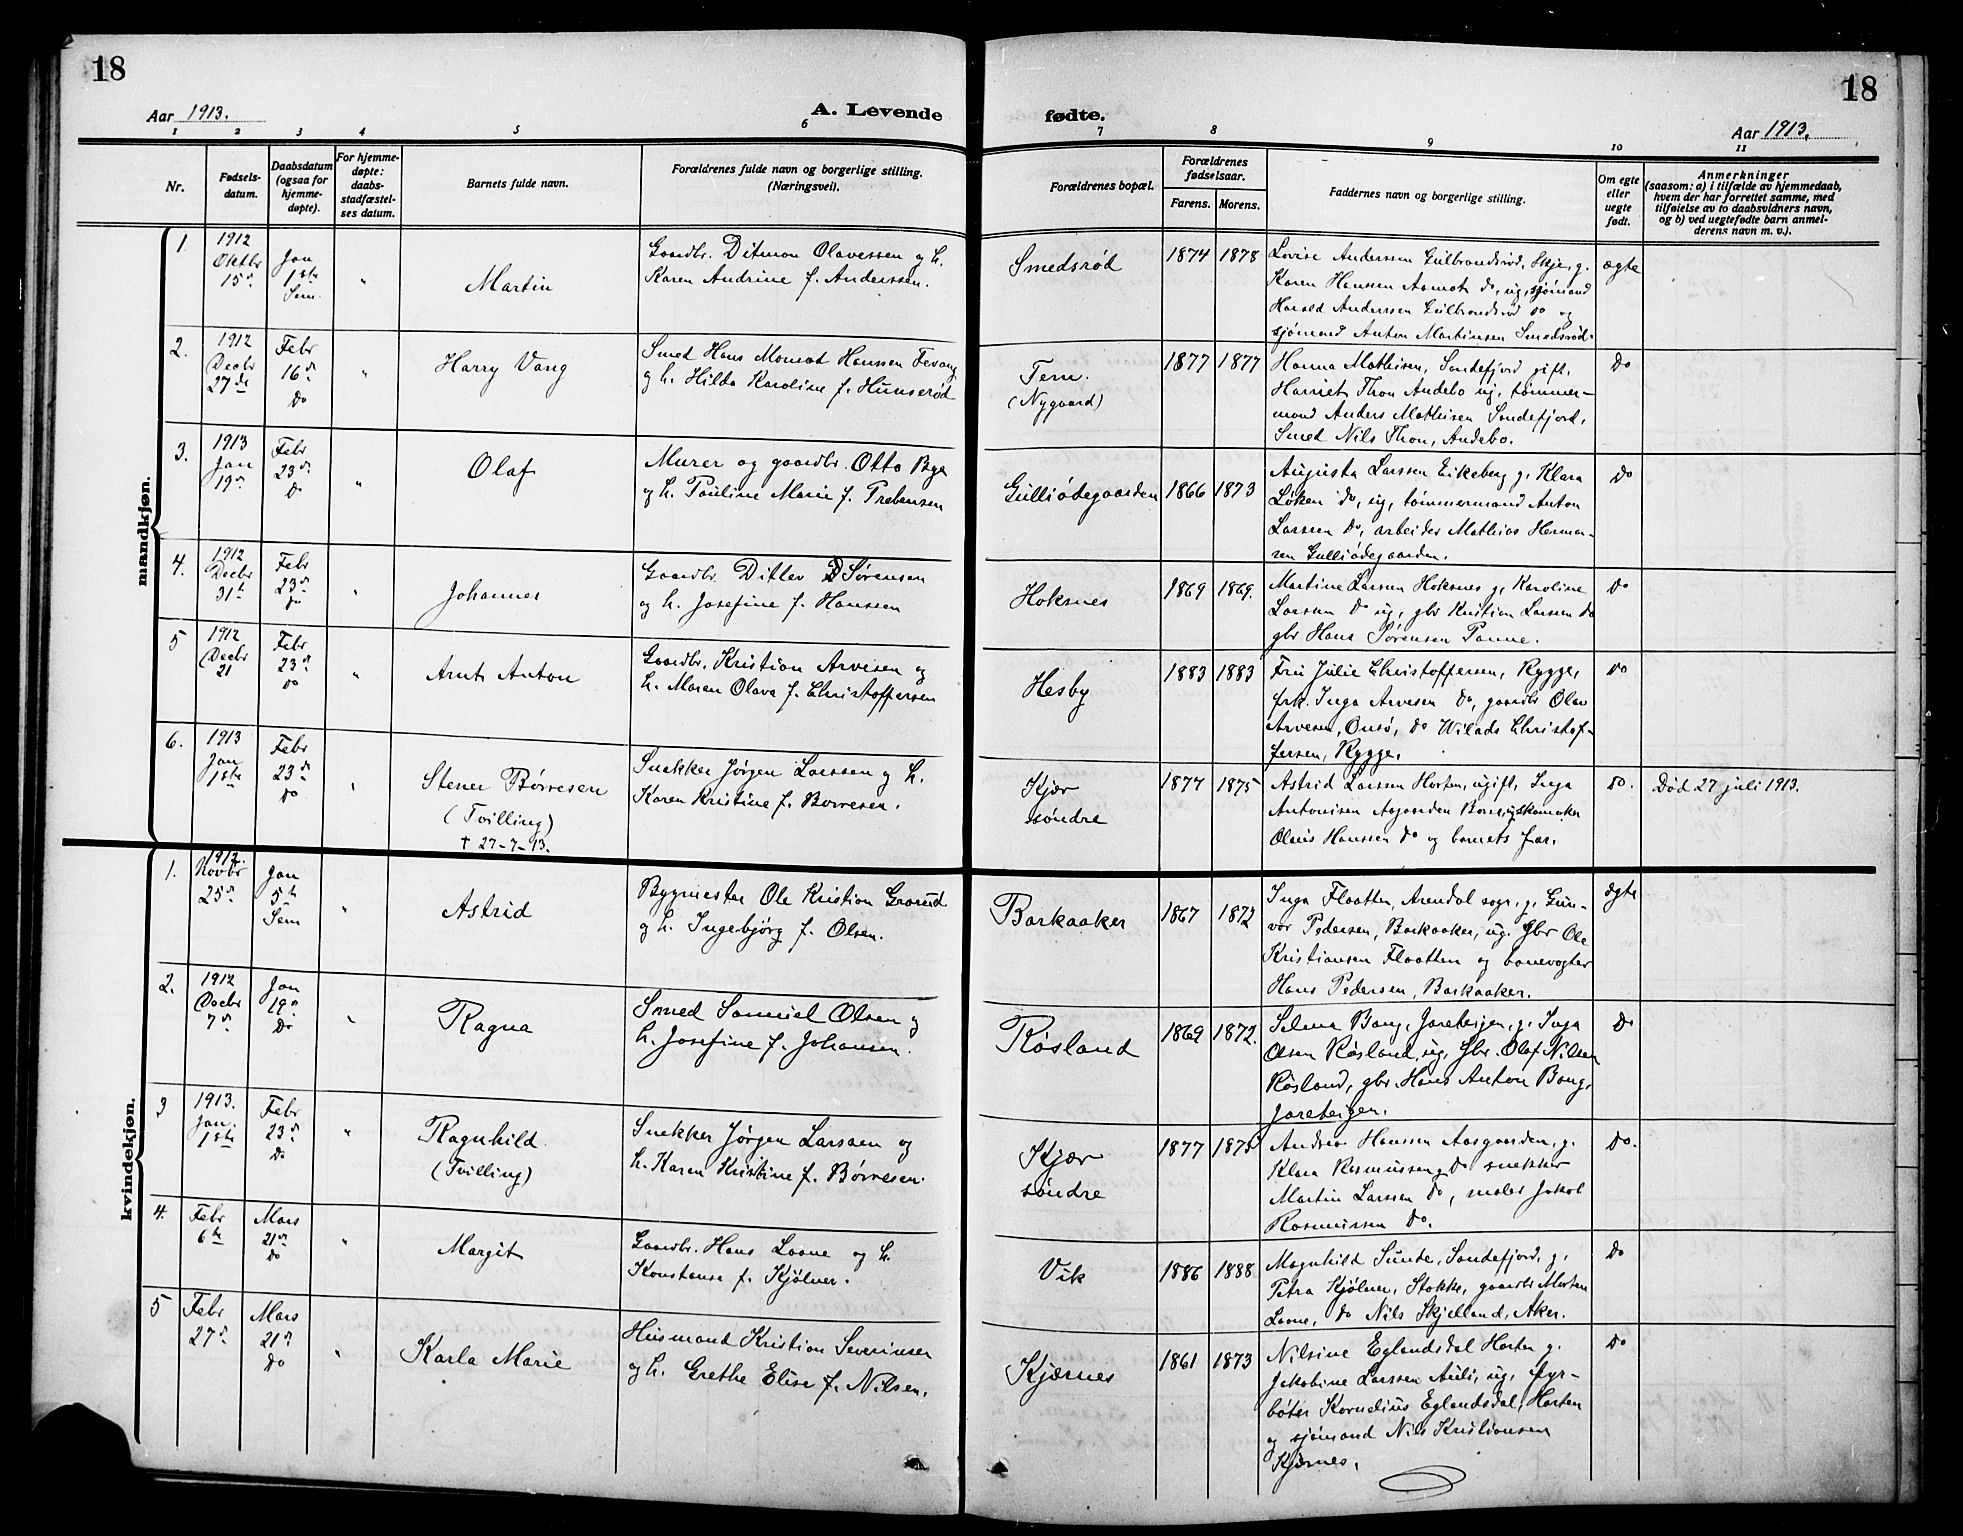 18
18
Aar 1913.
A. Levende
fødte.
Aar 1913.
1 2 3 4 5 6 7 8 9 10 11
Nr.
Fødsels-
datum.
Daabsdatum
(ogsaa for
hjemme-
døpte).
For hjemme-
døpte:
daabs-
stadfæstel-
ses datum.
Barnets fulde navn.
Forældrenes fulde navn og borgerlige stilling.
(Næringsvei).
Forældrenes bopæl.
Forældrenes
fødselsaar.
Farens. Morens.
Faddernes navn og borgerlige stilling.
Om egte
eller
uegte
født.
Anmerkninger
(saasom: a) i tilfælde av hjemmedaab,
hvem der har forrettet samme, med
tilføielse av to daabsvidners navn,
og b) ved uegtefødte barn anmel-
derens navn m. v.).
mandkjøn.
1.
1912
Oktbr
15de
Jan
1ste
Sem
"
Martin
Gaardbr. Ditman Olavessen og h.
Karen Andrine f. Anderssen.
Smedsrød
1874 1878
Lovise Anderssen Gulbrandsrød, Skje, g.
Karen Hansen Aamot do, ug, sjømand
Harald Anderssen Gulbrandsrød do og
sjømand Anton Martinsen Smedsrød.
ægte
2.
1912
Decbr
27de
Febr
16de
Do
"
Harry Vang
Smed Hans Momat Hanssen Fevang
og h. Hilda Karoline f. Hunserød
Tem.
(Nygaard)
1877 1877
Hanna Mathisen, Sandefjord gift,
Harriet Thon Andebo ug, tømmer-
mand Anders Mathisen Sandefjord,
Smed Nils Thon, Andebo.
Do
3.
1913
Jan
19de
Febr
23de
Do
"
Olaf
Murer og gaardbr. Otto Bye
og h. Pauline Marie f. Prebensen
Gulliødegaarden
1866 1873
Augusta Larssen Eikeberg g, Klara
Løken do, ug, tømmermand Anton
Larssen do, arbeider Mathias Herman-
sen Gulliødegaarden.
Do
4.
1912
Decbr
31te
Febr
23de
Do
"
Johannes
Gaardbr. Ditlev D Sørensen
og h. Josefine f. Hanssen
Hoksnes
1869 1869.
Martine Larsen Hoksnes g, Karoline
Larsen do ug, gbr Kristian Larssen do
gbr Hans Sørensen Panne.
Do
5
1912
Decbr
21
Febr
23de
Do
"
Arnt Anton
Gaardbr. Kristian Arvesen og
h. Maren Olava f. Christoffersen
Hesby
1883 1883
Fru Julie Christoffersen, Rygge,
frk. Inga Arvesen do, gaardbr Olav
Arvesen, Onsø, do Wilads Christof-
fersen, Rygge.
Do
6.
1913
Jan
1ste
Febr
23de
Do
"
Stener Børresen
(Tvilling)
† 27-7-13.
Snekker Jørgen Larssen og h.
Karen Kristine f. Borresen.
Kjær
søndre
1877 1875
Astrid Larssen Horten, ugift, Inga
Antonisen Aasgaarden Borre, ug, skomaker
Olaus Hanssen do og barnets far.
Do.
Død 27 juli 1913.
kvindekjøn.
1.
1912.
Novbr
25de
Jan
5te
Sem
"
Astrid
Bygmester Ole Kristian Grorud
og h. Ingebjørg f. Olsen.
Barkaaker
1867 1872
Inga Flaatten, Arendal sogn, g, Gun-
vor Pedersen, Barkaaker, ug. Gbr Ole
Kristiansen Flaatten og banevogter
Hans Pedersen, Barkaaker.
ægte
2.
1912
Decbr
7de
Jan
19de
Do
"
Ragna
Smed Samuel Olsen og
h. Josefine f. Johansen.
Røsland
1869 1872.
Selma Bang, Jareteigen, g, Inga
Olsen Røsland, ug, Gbr. Olaf Nilsen
Røsland, gbr Hans Anton Bang,
Jareteigen.
Do
3
1913.
Jan.
1ste
Febr
23de
Do
"
Ragnhild
(Tvilling)
Snekker Jørgen Larssen og
h. Karen Kristine f. Børresen.
Kjær
søndre
1877 1875
Andrea Hansen Aasgaarden, g.
Klara Rasmussen, g do snekker
Martin Larssen do, maler Jakob
Rasmussen do.
Do.
4.
Febr
6te
Mars
21de
Do
"
Margit
Gaardbr. Hans Laane og h.
Konstanse f. Kjølner.
Vik
1886 1888
Magnhild Sunte, Sandefjord, g,
Petra Kjølner, Stokke, gaardbr Morten
Laane, do Nils Skjelland, Aker.
Do
5
Febr
27de
Mars
21de
Do
"
Karla Marie
Husmand Kristian Severinsen
og h. Grethe Elise f. Nilsen.
Kjærnes
1861 1873
Nilsine Eglandsdal Horten g.
Jakobine Larssen Auli, ug, fyr-
bøter Kornelius Eglandsdal, Horten
og sjømand Nils Kristiansen
Kjærnes.
Do